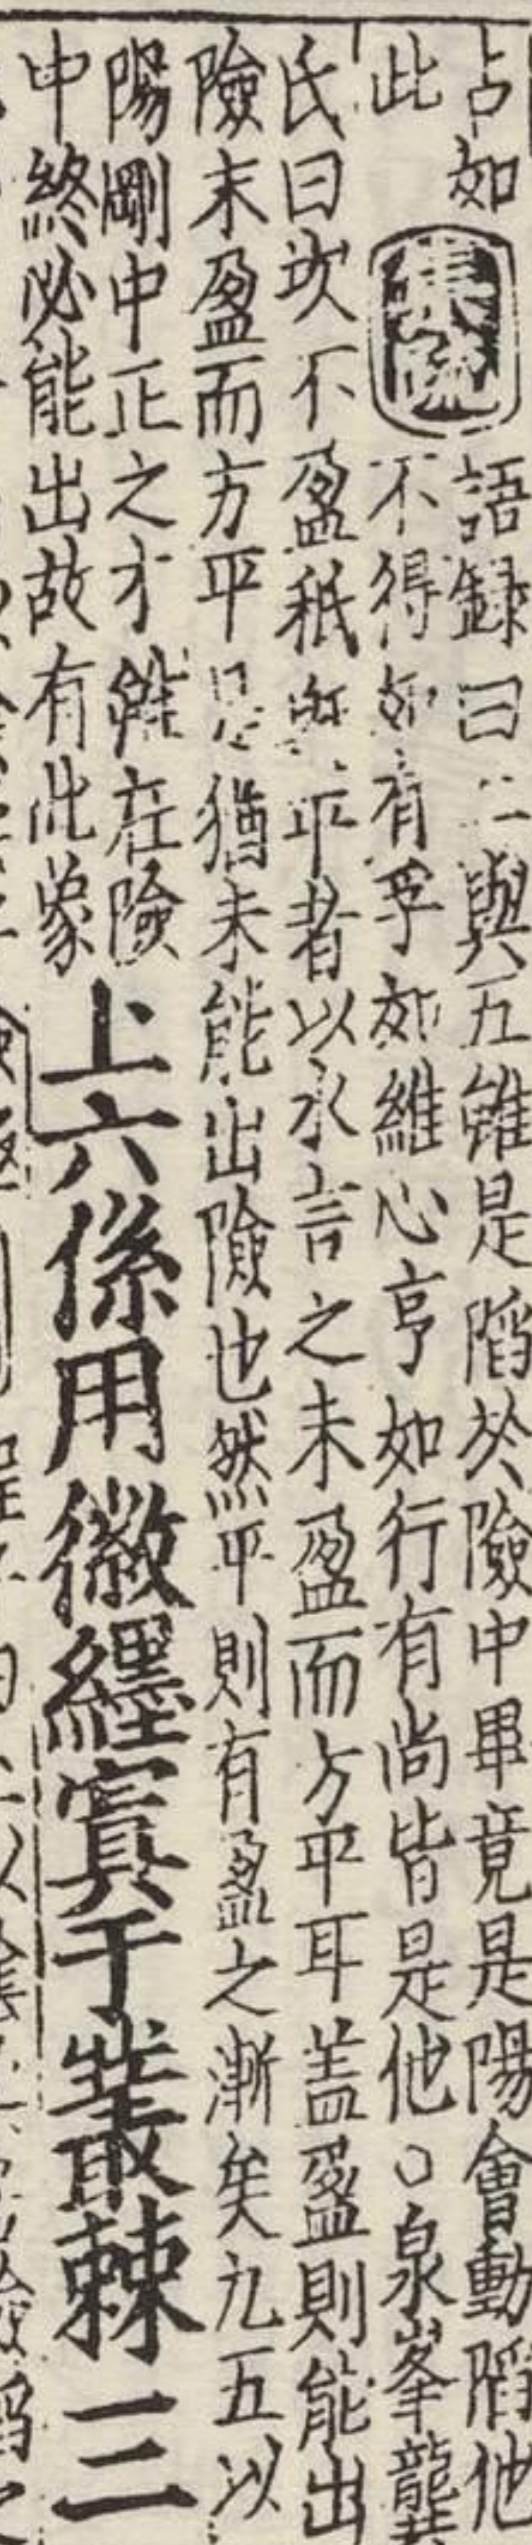 占如
此
語録曰二與五雖是陷於險中畢竟是陽會動陷他
不得如有孚如維心亨如行有尚皆是他○泉峯龔
氏曰坎不盈秪既平者以水言之未盈而方平耳蓋盈則能出
險未盈而方平是猶未能出險也然平則有盈之漸矣九五以
陽剛中正之才雖在險
中終必能出故有此象
上六係用徽纆寘于叢棘三